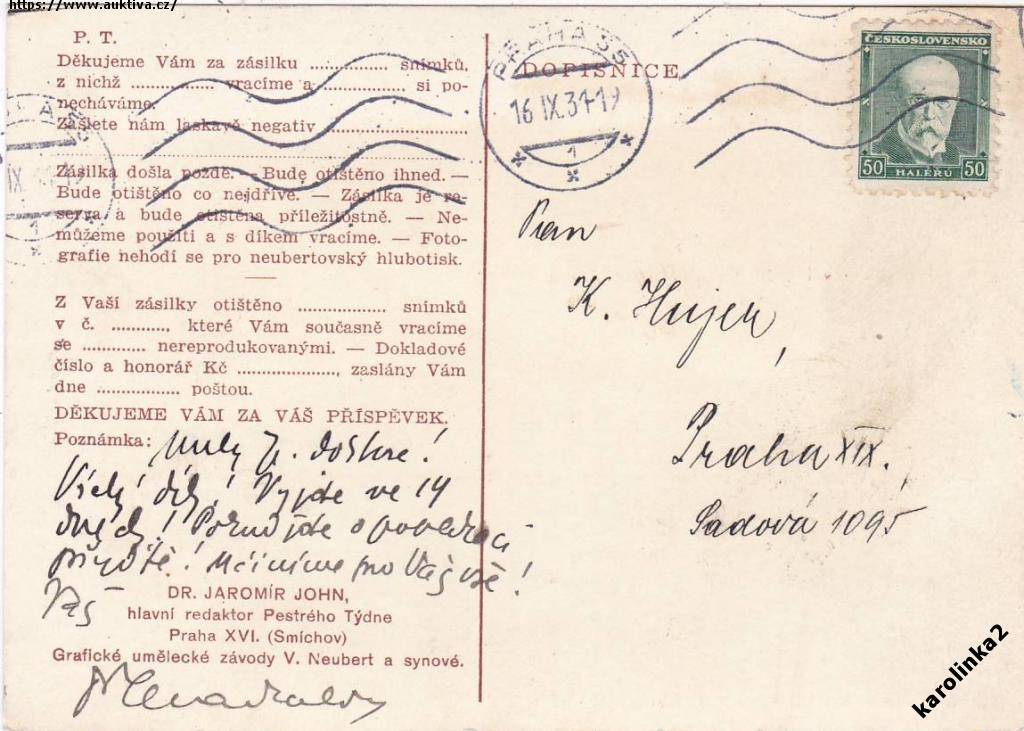 https://www.auktiva.cz/
P. T.
Děkujeme Vám za zásilku ............... snímků,
z nichž ............... vracíme a ............... si po-
necháváme.
Zašlete nám laskavě negativ ...............
Zásilka došla pozdě. — Bude otištěno ihned. —
Bude otištěno co nejdříve. — Zásilka je re-
serva a bude otištěna příležitostně. — Ne-
můžeme použíti a s díkem vracíme. — Foto-
grafie nehodí se pro neubertovský hlubotisk.
Z Vaší zásilky otištěno ............... snímků
v č. ..........., které Vám současně vracíme
se ............ nereprodukovanými. — Dokladové
číslo a honorář Kč ..................., zaslány Vám
dne ............... poštou.
DĚKUJEME VÁM ZA VÁŠ PŘÍSPĚVEK.
Poznámka:
Vyjde ve 14
příště! Učiníme pro Vás vše!
Váš
DR. JAROMÍR JOHN,
hlavní redaktor Pestrého Týdne
Praha XVI. (Smíchov)
Grafické umělecké závody V. Neubert a synové.
PRAHA 35
16 IX. 31-19
1
DOPISNICE
ČESKOSLOVENSKO
50 HALÉŘŮ 50
Pan
K. Hujer,
Praha XIX.
Sadová 1095
karolinka2